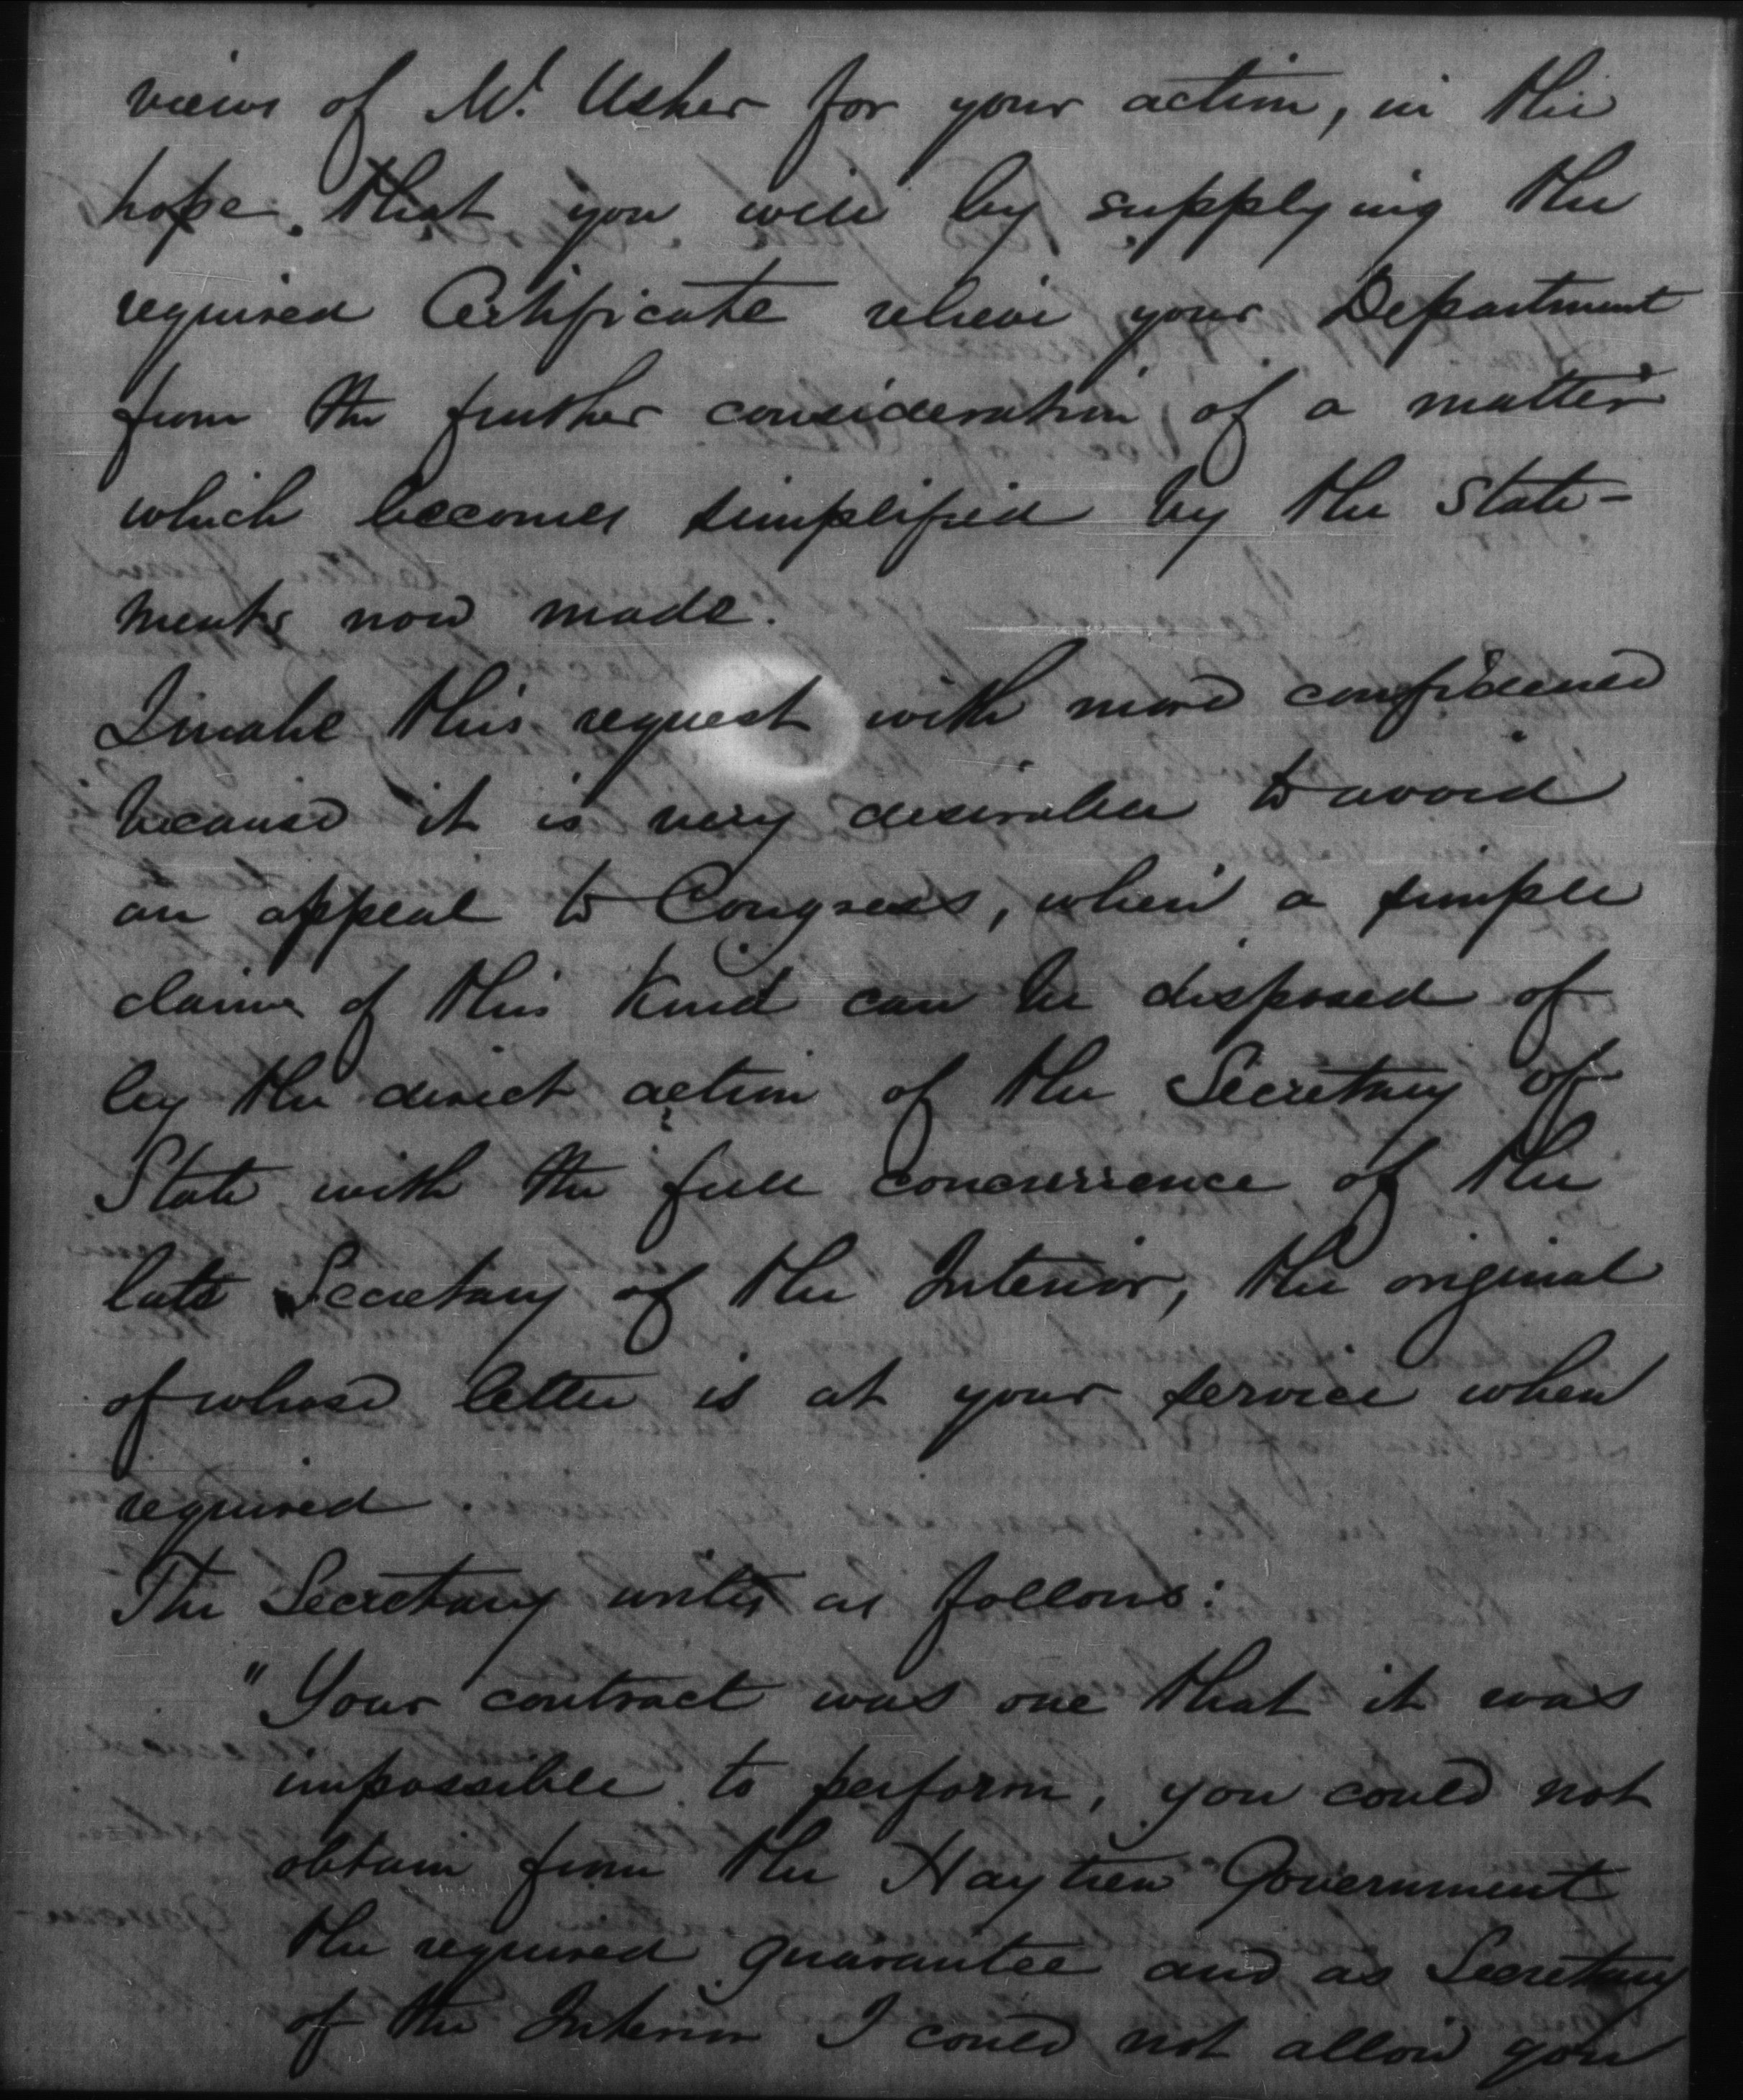 views of Mr. Usher for your action, in the
hope that you will by supplying the
required Certificate relieve your Department
from the further consideration of a matter
which becomes simplified by the State-
ments now made.
I make this request with more confidence
because it is very desirable to avoid
an appeal to Congress, when a simple
claim of this kind can be disposed of
by the direct action of the Secretary of
State with the full concurrence of the
late Secretary of the Interior, the original
of whose letter is at your service when
required.
The Secretary writes as follows:
"Your contract was one that it was
impossible to perform, you could not
obtain from the Haytien Government
the required guarantee and as Secretary
of the Interior I could not allow you